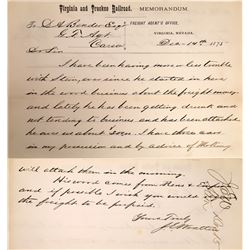 Virginia and Truckee Railroad. MEMORANDUM.
To D A Bender Esq
FREIGHT AGENT'S OFFICE,
G. F. Agt
VIRGINIA, NEVADA,
Carson
Dec 14th 1875
Dr Sir
I have been having more or less trouble
with ever since he started in here
in the wood business about the freight money
and lately he has been getting drunk and
not tending to business and has been attached
he owes us about I have three cars
in my possession and by advice of
will attach them in the morning.
His wood comes from &
and if possible I wish you would
the freight to be prepaid.
Yours Truly